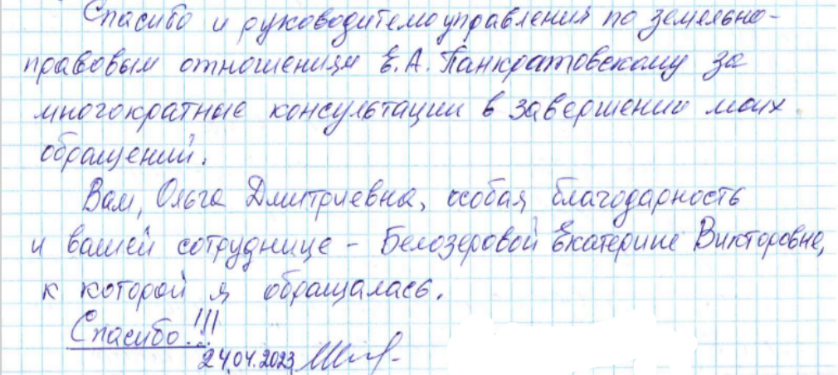 Спасибо и руководителю управления по земельно-
правовым отношениям Е.А. Панкратовскому за
многократные консультации в завершении моих
обращений.
Вам, Ольга Дмитриевна, особая благодарность
и вашей сотруднице - Белозеровой Екатерине Викторовне,
к которой я обращалась.
Спасибо!!!
24.04.2023